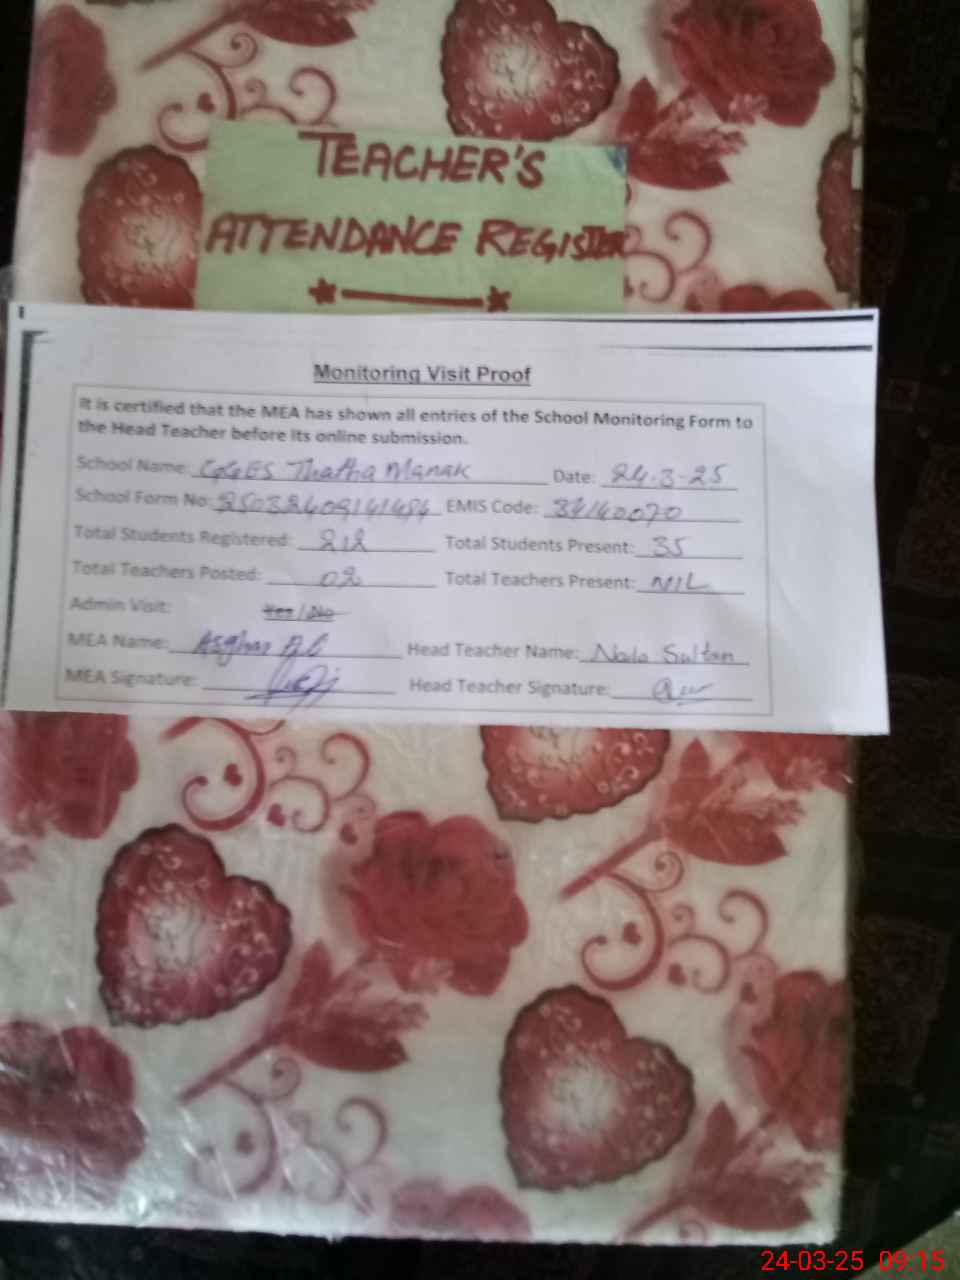 TEACHER'S
ATTENDANCE REGISTER
Monitoring Visit Proof
It is certified that the MEA has shown all entries of the School Monitoring Form to
the Head Teacher before its online submission.
School Name: GGES Thatha Manak Date: 24-3-25
School Form No: EMIS Code: 34140070
Total Students Registered: 212 Total Students Present: 35
Total Teachers Posted: 02 Total Teachers Present: NIL
Admin Visit: Yes / No
MEA Name: Asghar Ali Head Teacher Name: Nada Sultan
MEA Signature: Head Teacher Signature:
24-03-25 09:15